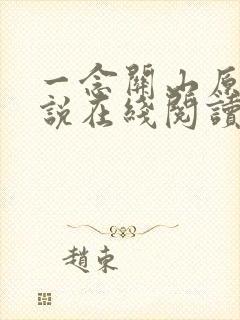 一念關山原
說在綫閱讀
趙東